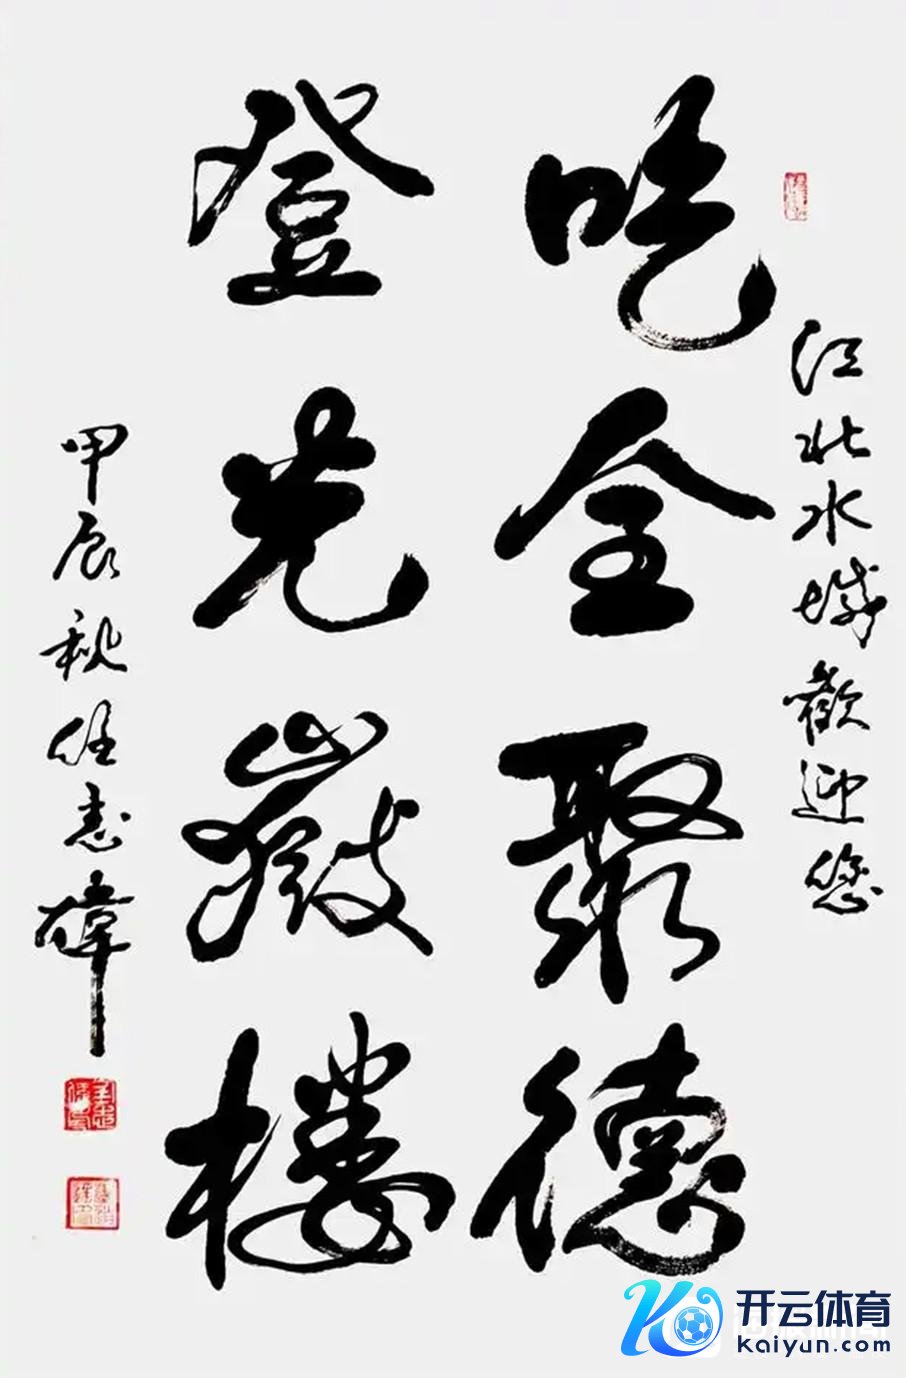 江北水城歡迎您
吃全聚德
登光嶽樓
甲辰秋任志偉
开云体育
kaiyun.com